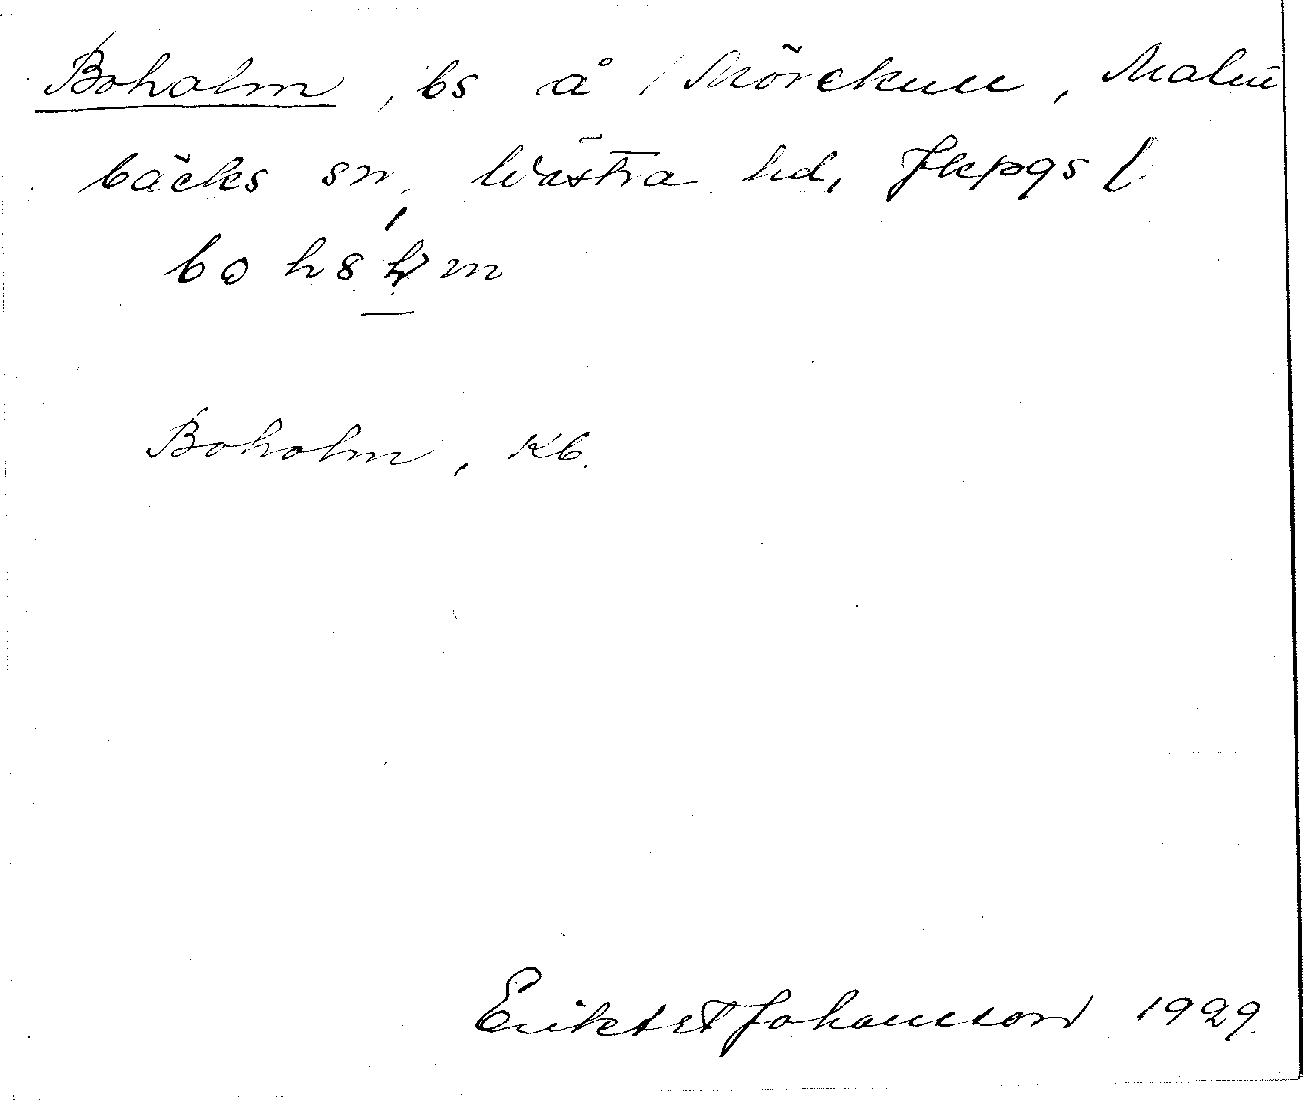 Boholm, bs å Mörekull, Malm
bäcks sn, Västra hd, Jkpgs l.
bo h8lm
Boholm, Kb.
Johansson 1929